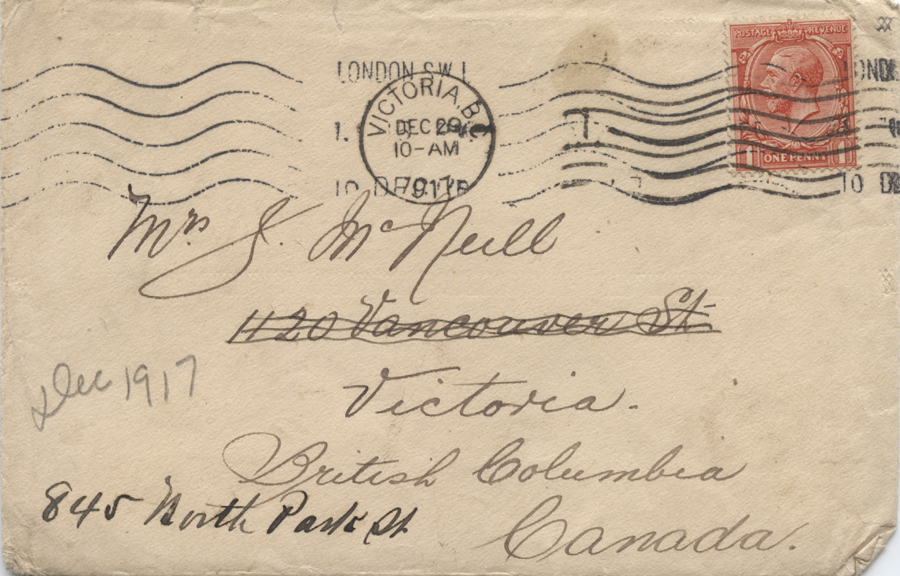 POSTAGE REVENUE
LONDON S.W.1
VICTORIA, B.C.
DEC 29
10-AM
1917
10 DEC 17
ONE PENNY
1 1
Mrs J. McNeill
1120 Vancouver St
Victoria.
Dec 1917
British Columbia
845 North Park St
Canada.